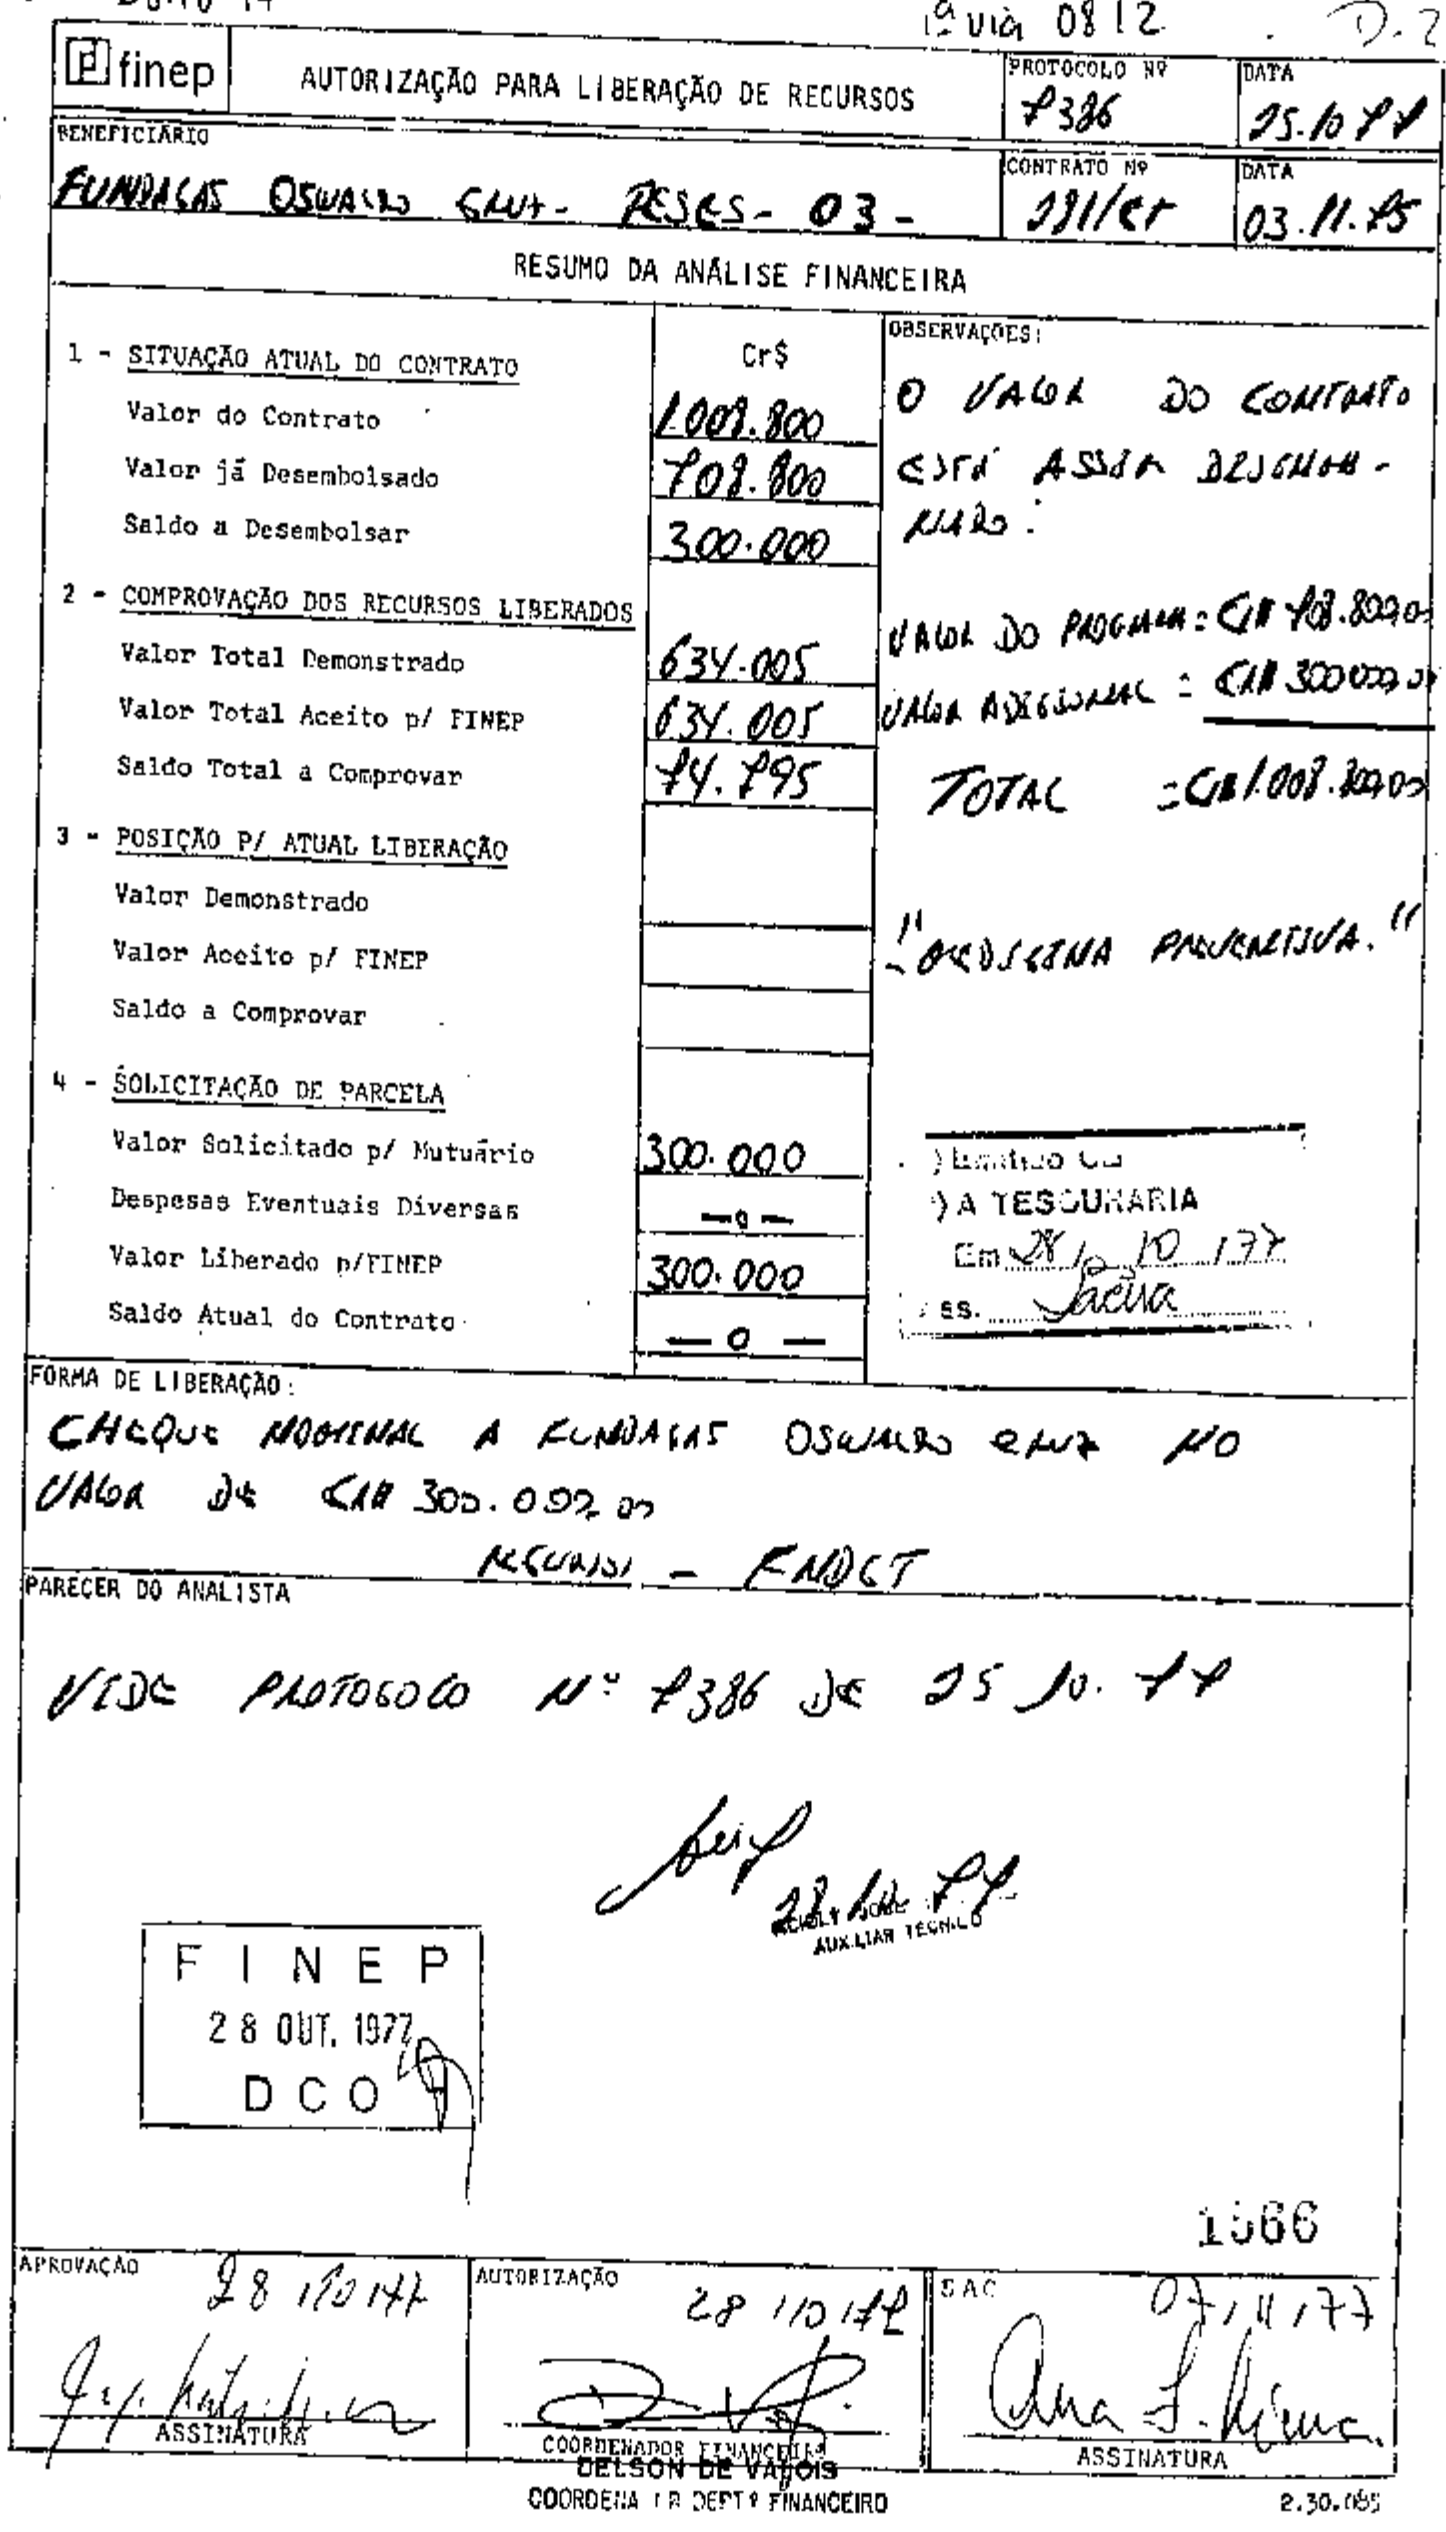 1ª via 0812
finep
AUTORIZAÇÃO PARA LIBERAÇÃO DE RECURSOS
PROTOCOLO Nº
7386
DATA
25.10.77
BENEFICIÁRIO
FUNDAÇAS OSWALDO CRUZ - PESES - 03 -
CONTRATO Nº
291/CT
DATA
03.11.75
RESUMO DA ANÁLISE FINANCEIRA
1 - SITUAÇÃO ATUAL DO CONTRATO
Cr$
Valor do Contrato 1.008.800
Valor já Desembolsado 708.800
Saldo a Desembolsar 300.000
2 - COMPROVAÇÃO DOS RECURSOS LIBERADOS
Valor Total Demonstrado 634.005
Valor Total Aceito p/ FINEP 634.005
Saldo Total a Comprovar 74.795
3 - POSIÇÃO P/ ATUAL LIBERAÇÃO
Valor Demonstrado
Valor Aceito p/ FINEP
Saldo a Comprovar
4 - SOLICITAÇÃO DE PARCELA
Valor Solicitado p/ Mutuário 300.000
Despesas Eventuais Diversas -o-
Valor Liberado p/FINEP 300.000
Saldo Atual do Contrato - 0 -
OBSERVAÇÕES:
O VALOR DO CONTRATO
ESTÁ ASSIM
VALOR DO PROGRAMA = CR$ 708.800,00
VALOR ADICIONAL = CR$ 300.000,00
TOTAL = CR$ 1.008.800,00
- "MEDICINA PREVENTIVA."
) A TESOURARIA
Em 28 / 10 / 77
ss. Jacira
FORMA DE LIBERAÇÃO:
CHEQUE NOMINAL A FUNDAÇAS OSWALDO CRUZ NO
VALOR DE CR$ 300.000,00
RECURSOS - FNDCT
PARECER DO ANALISTA
VIDE PROTOCOLO Nº 7386 DE 25.10.77
28.10.77
AUXILIAR TECNICO
FINEP
28 OUT. 1977
DCO
1566
APROVAÇÃO
28/10/77
ASSINATURA
AUTORIZAÇÃO
28/10/77
COORDENADOR FINANCEIRO
DELSON DE VALOIS
COORDENADOR DEPTº FINANCEIRO
SAC
07/11/77
Ana
ASSINATURA
2.30.085